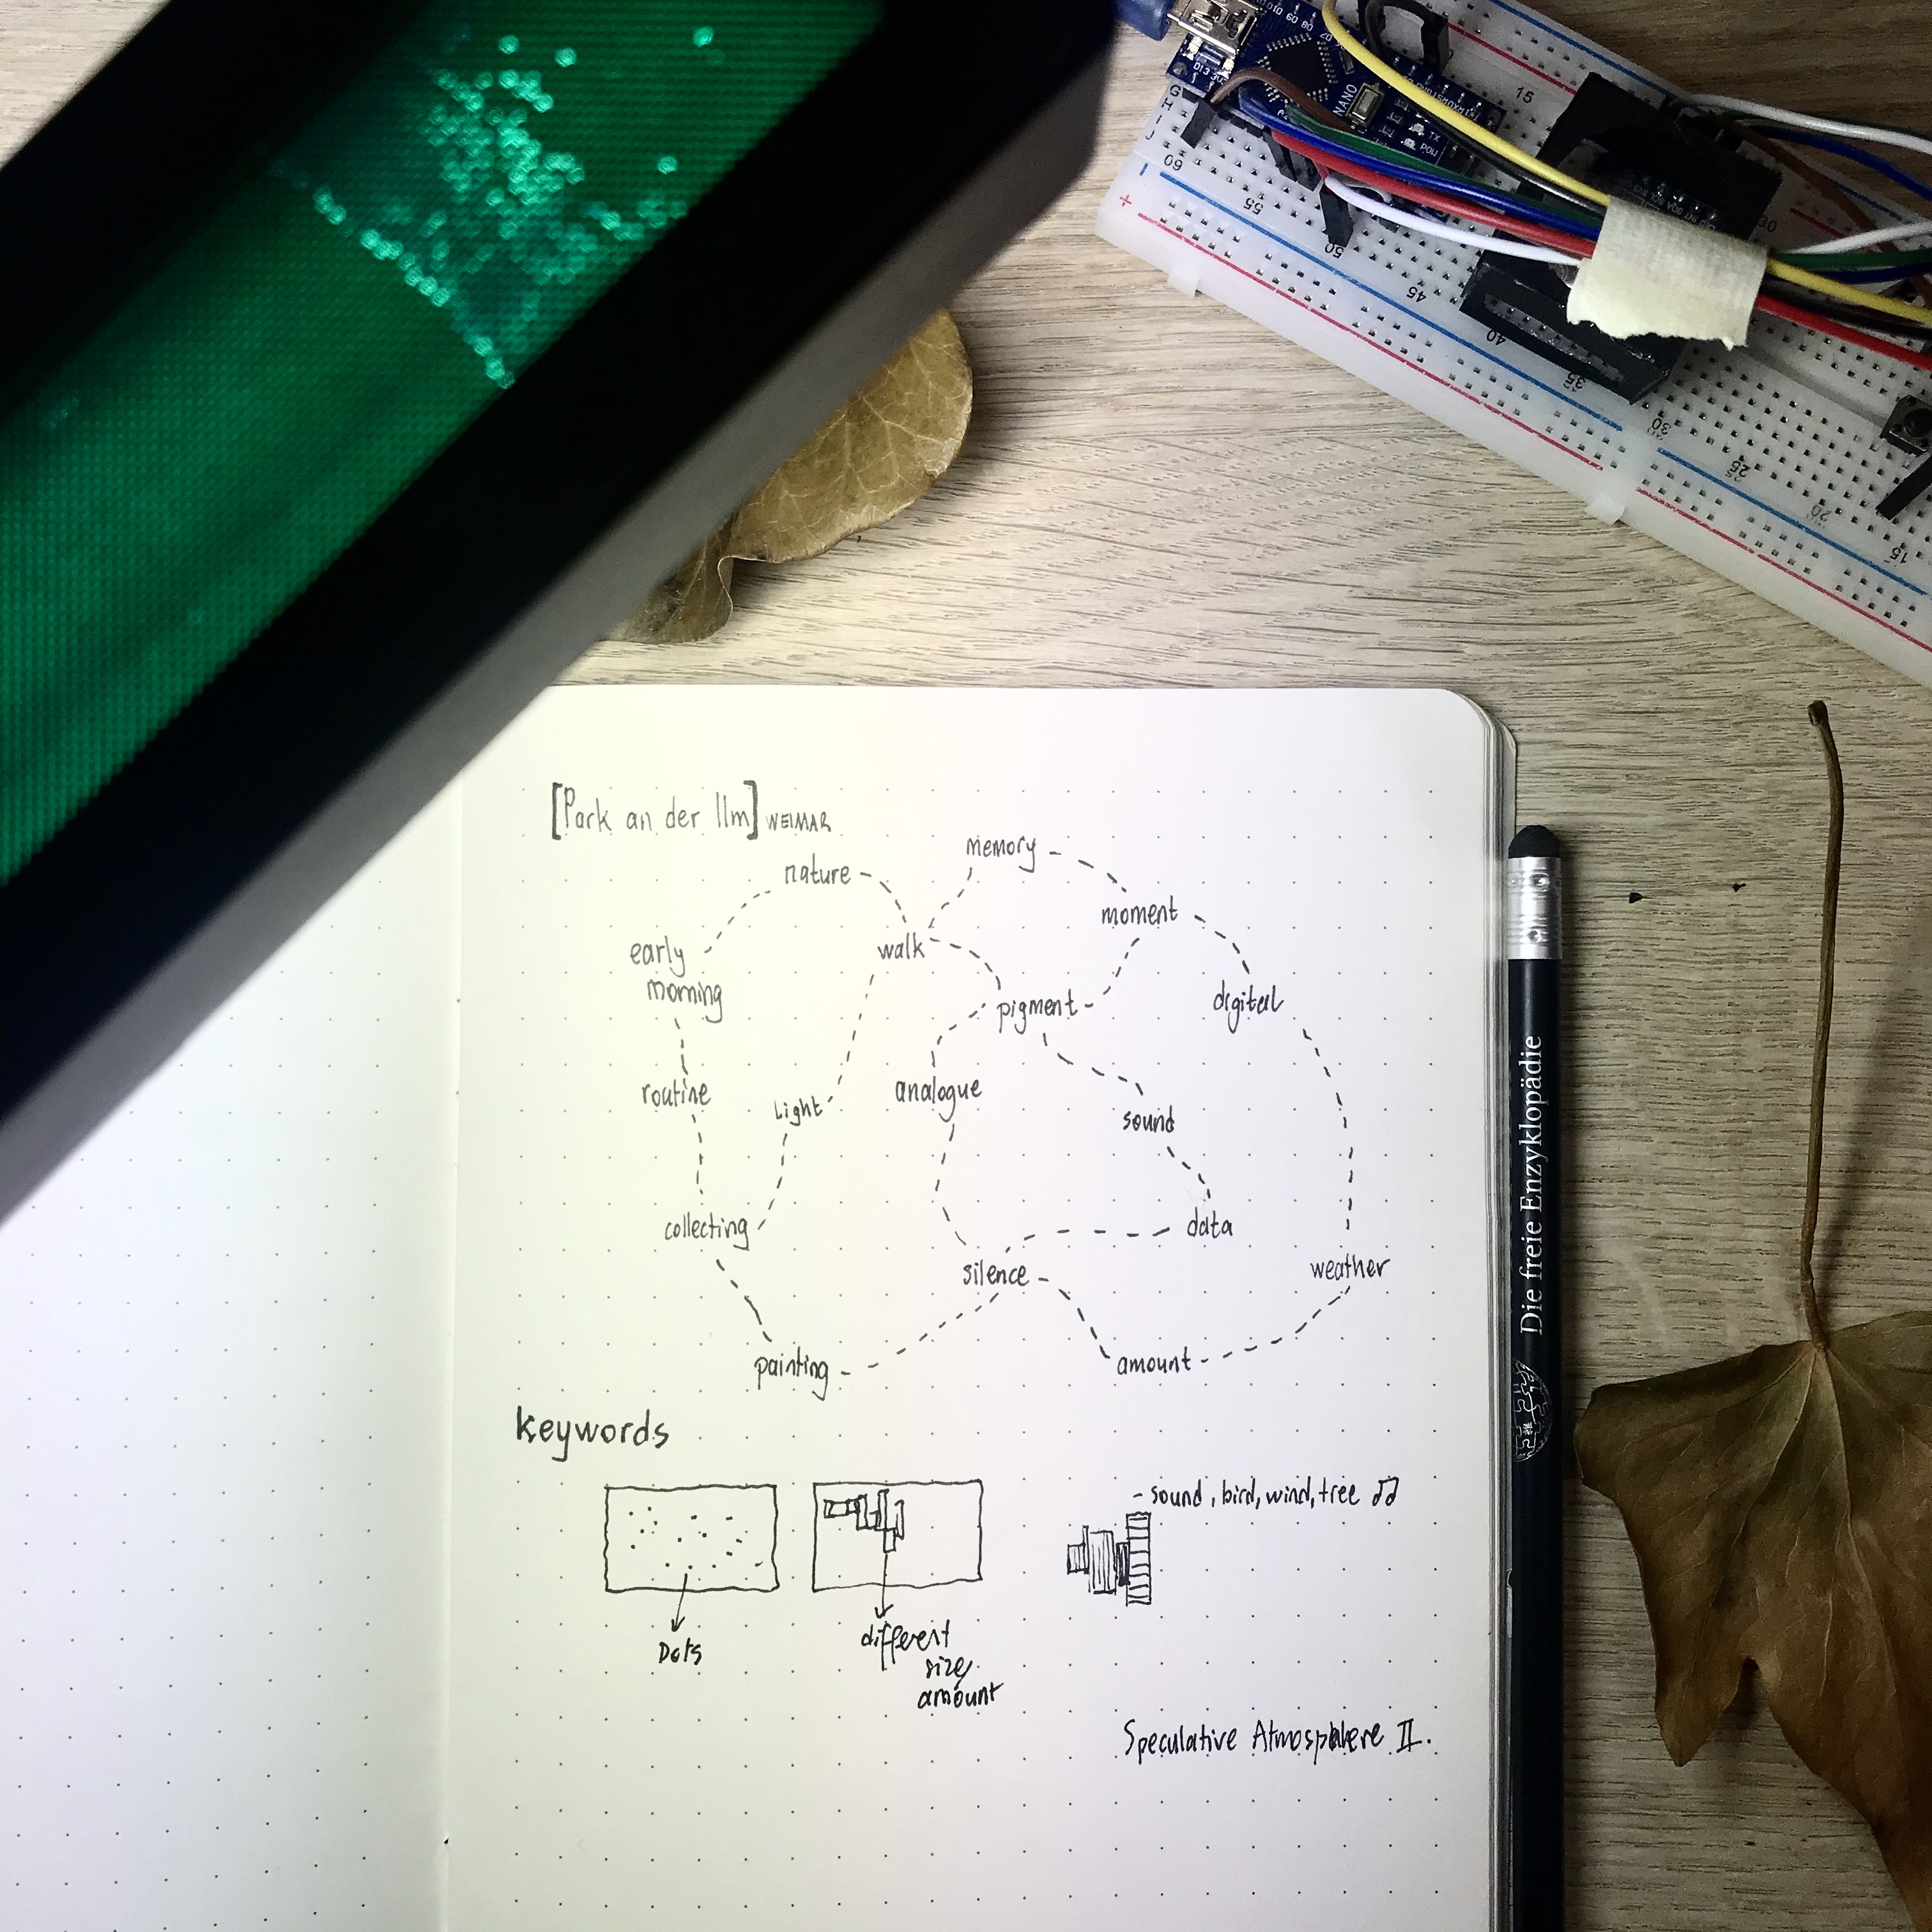 [Park an der Ilm] WEIMAR
memory
nature
moment
early
morning
walk
digital
pigment
routine
Light
analogue
sound
collecting
data
silence
weather
painting
amount
keywords
- sound, bird, wind, tree ♫
Dots
different
size,
amount
Speculative Atmosphere II.
Die freie Enzyklopädie
NANO
15
60
55
50
45
40
35
30
25
20
15